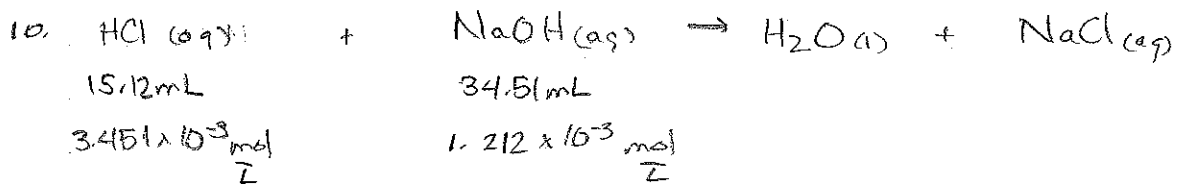 10. HCl (aq) + NaOH (aq) → H₂O (l) + NaCl (aq)
15.12mL 34.51mL
3.451 x 10⁻³ mol/L 1.212 x 10⁻³ mol/L